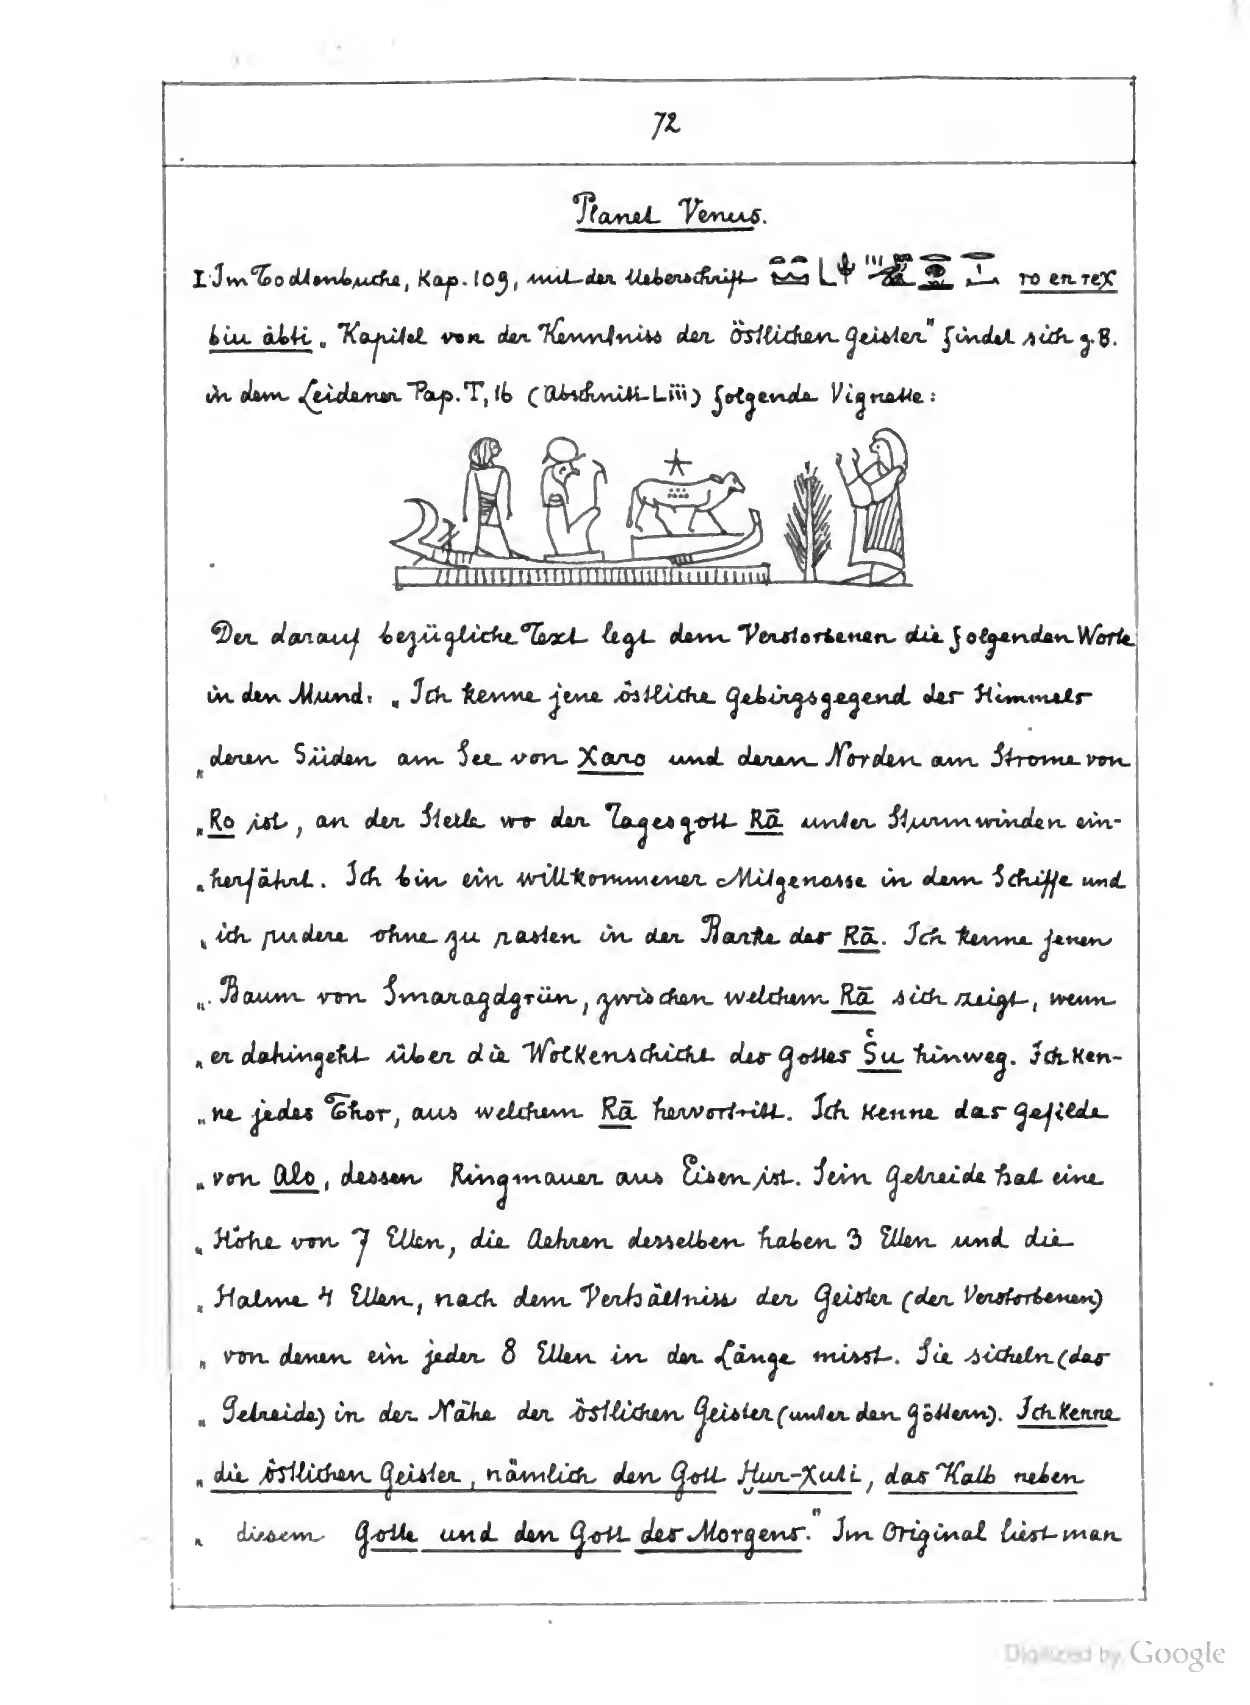 72
Planet Venus.
I. Im Todtenbuche, Kap. 109, mit der Ueberschrift ro en reχ
biu abti „Kapitel von der Kenntniss der östlichen Geister" findet sich z.B.
in dem Leidener Pap. T, 16 (Abschnitt Liii) folgende Vignette:
Der darauf bezügliche Text legt dem Verstorbenen die folgenden Worte
in den Mund: „Ich kenne jene östliche Gebirgsgegend des Himmels
„deren Süden am See von Xaro und deren Norden am Strome von
„Ro ist, an der Stelle wo der Tagesgott Rā unter Sturmwinden ein-
„herfährt. Ich bin ein willkommener Mitgenosse in dem Schiffe und
„ich rudere ohne zu rasten in der Barke des Rā. Ich kenne jenen
„Baum von Smaragdgrün, zwischen welchem Rā sich zeigt, wenn
„er dahingeht über die Wolkenschicht des Gottes Šu hinweg. Ich ken-
„ne jedes Thor, aus welchem Rā hervortritt. Ich kenne das Gefilde
„von Alo, dessen Ringmauer aus Eisen ist. Sein Getreide hat eine
„Höhe von 7 Ellen, die Aehren desselben haben 3 Ellen und die
„Halme 4 Ellen, nach dem Verhältniss der Geister (der Verstorbenen)
„von denen ein jeder 8 Ellen in der Länge misst. Sie sicheln (das
„Getreide) in der Nähe der östlichen Geister (unter den Göttern). Ich kenne
„die östlichen Geister, nämlich den Gott Hur-χuti, das Kalb neben
„diesem Gotte und den Gott des Morgens." Im Original liest man
Digitized by Google